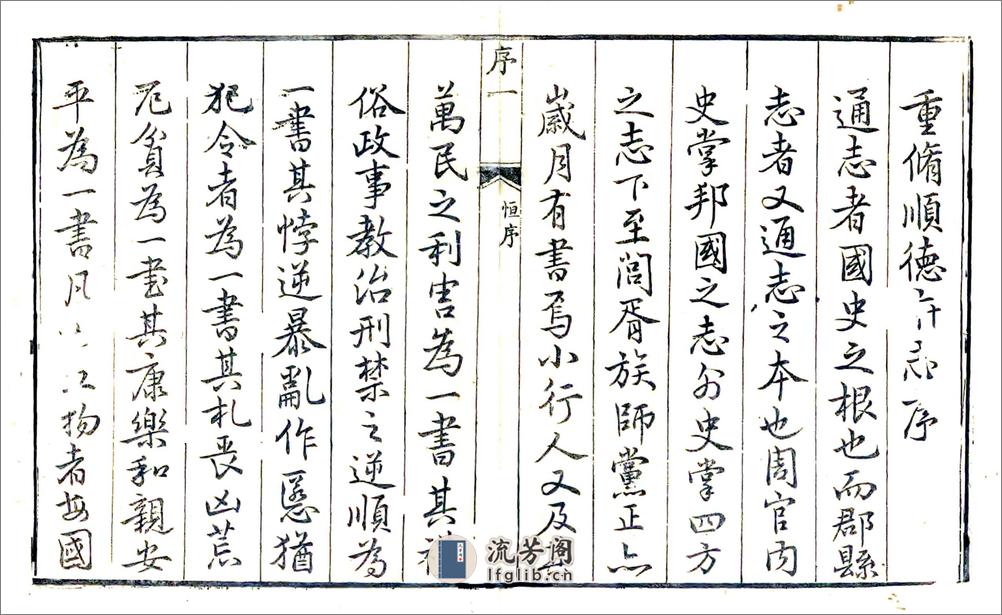 重脩順德志序
通志者國史之根也而郡縣
志者又通志之本也周官内
史掌邦國之志外史掌四方
之志下至閭胥族師黨正亦
歲月有書焉小行人又及
序一
恒序
萬民之利害為一書其
俗政事教治刑禁之逆順為
一書其悖逆暴亂作慝猶
犯令者為一書其札喪凶荒
厄貧為一書其康樂和親安
平為一書凡物者每國
流芳阁
lfglib.cn